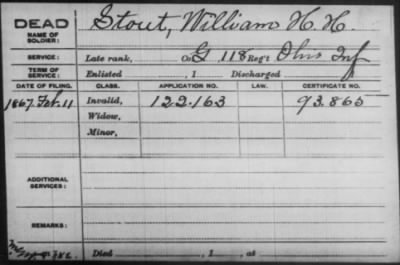 DEAD
NAME OF SOLDIER: Stout, William H. H.
SERVICE: Late rank, Co G 118 Reg't Ohio Inf
TERM OF SERVICE: Enlisted , 1 Discharged
DATE OF FILING. CLASS. APPLICATION NO. LAW. CERTIFICATE NO.
1867. Feb. 11 Invalid, 122.163 93.865
Widow,
Minor,
ADDITIONAL SERVICES:
REMARKS:
Died , 1 , at